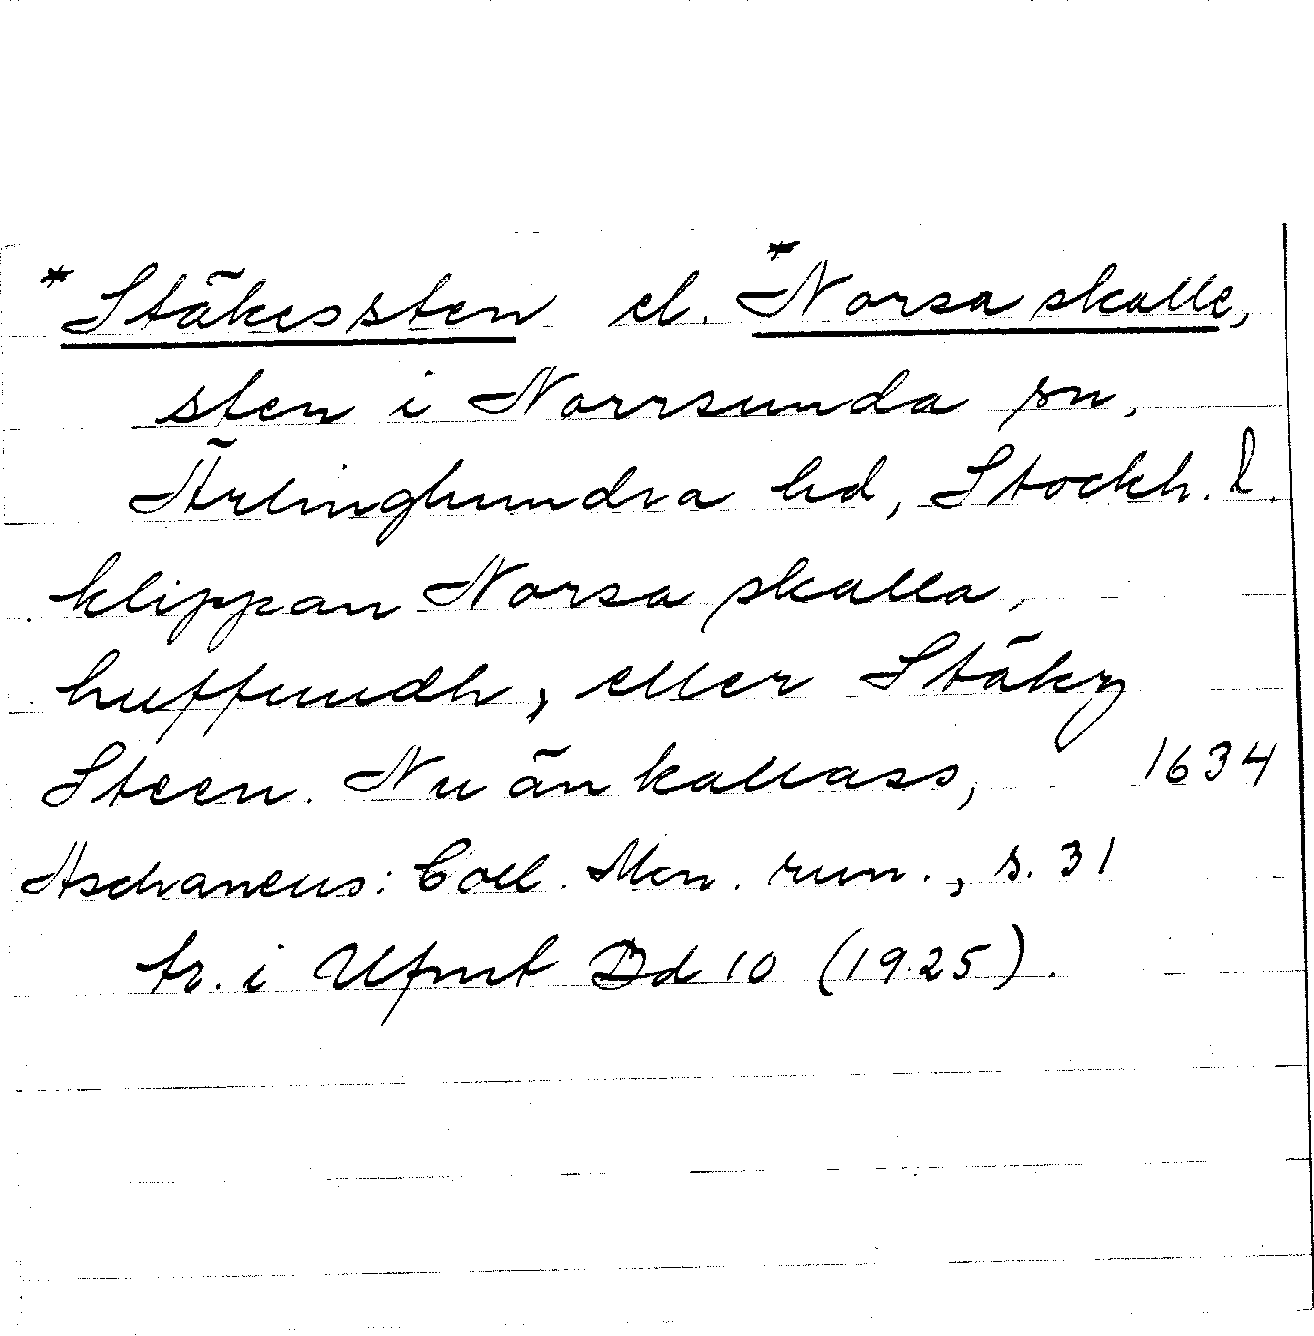 *Stäkessten el. *Norsa skalle,
sten i Norrsunda sn,
Ärlinghundra hd, Stockh. l.
klippan Norsa skalla,
huffuudh, eller Stäky
Steen. Nu än kallass, 1634
Aschaneus: Coll. Mon. run., s. 31
tr. i Ufmt Bd 10 (1925).